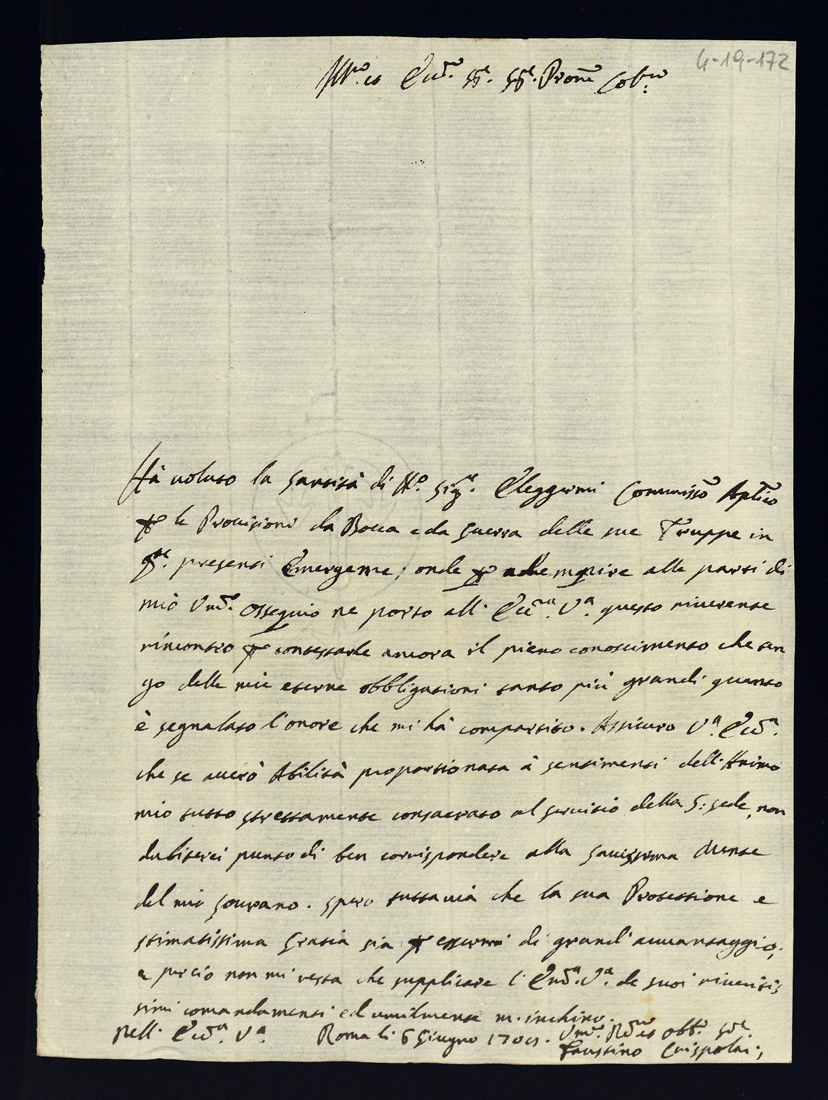 4-19-172
Ill.mo et Ecc.mo Sig.re Sig.re Pron.e Col.mo
Hà voluto la Santità di N.ro Sig.re Eleggermi Commiss.o Aplico
le Provisioni da Bocca e da Guerra delle sue Truppe in
q.te presenti Emergenze; onde adempire alle parti di
mio Um.o ossequio ne porto all' Ecc.a V.a questo riverente
rincontro contestarle ancora il pieno conoscimento che ten
go delle mie eterne obbligationi tanto più grandi quanto
è segnalato l'onore che mi hà compartito. Assicuro V.a Ecc.a
che se averò Abilità proportionata à sentimenti dell'Animo
mio tutto strettamente consacrato al servitio della S: Sede, non
dubiterei punto di ben corrispondere alla Santissima Mente
del mio Sovrano. Spero tuttavia che la sua Protettione e
stimatissima Gratia sia essermi di grand'avvantaggio;
e perciò non mi resta che supplicare l'Ecc.a V.a de suoi riveritis
simi comandamenti ed umilmente m'inchino.
Dell' Ecc.a V.a Roma li 6 Giugno Um.o et Obb.o Se.re
Faustino Crispolti